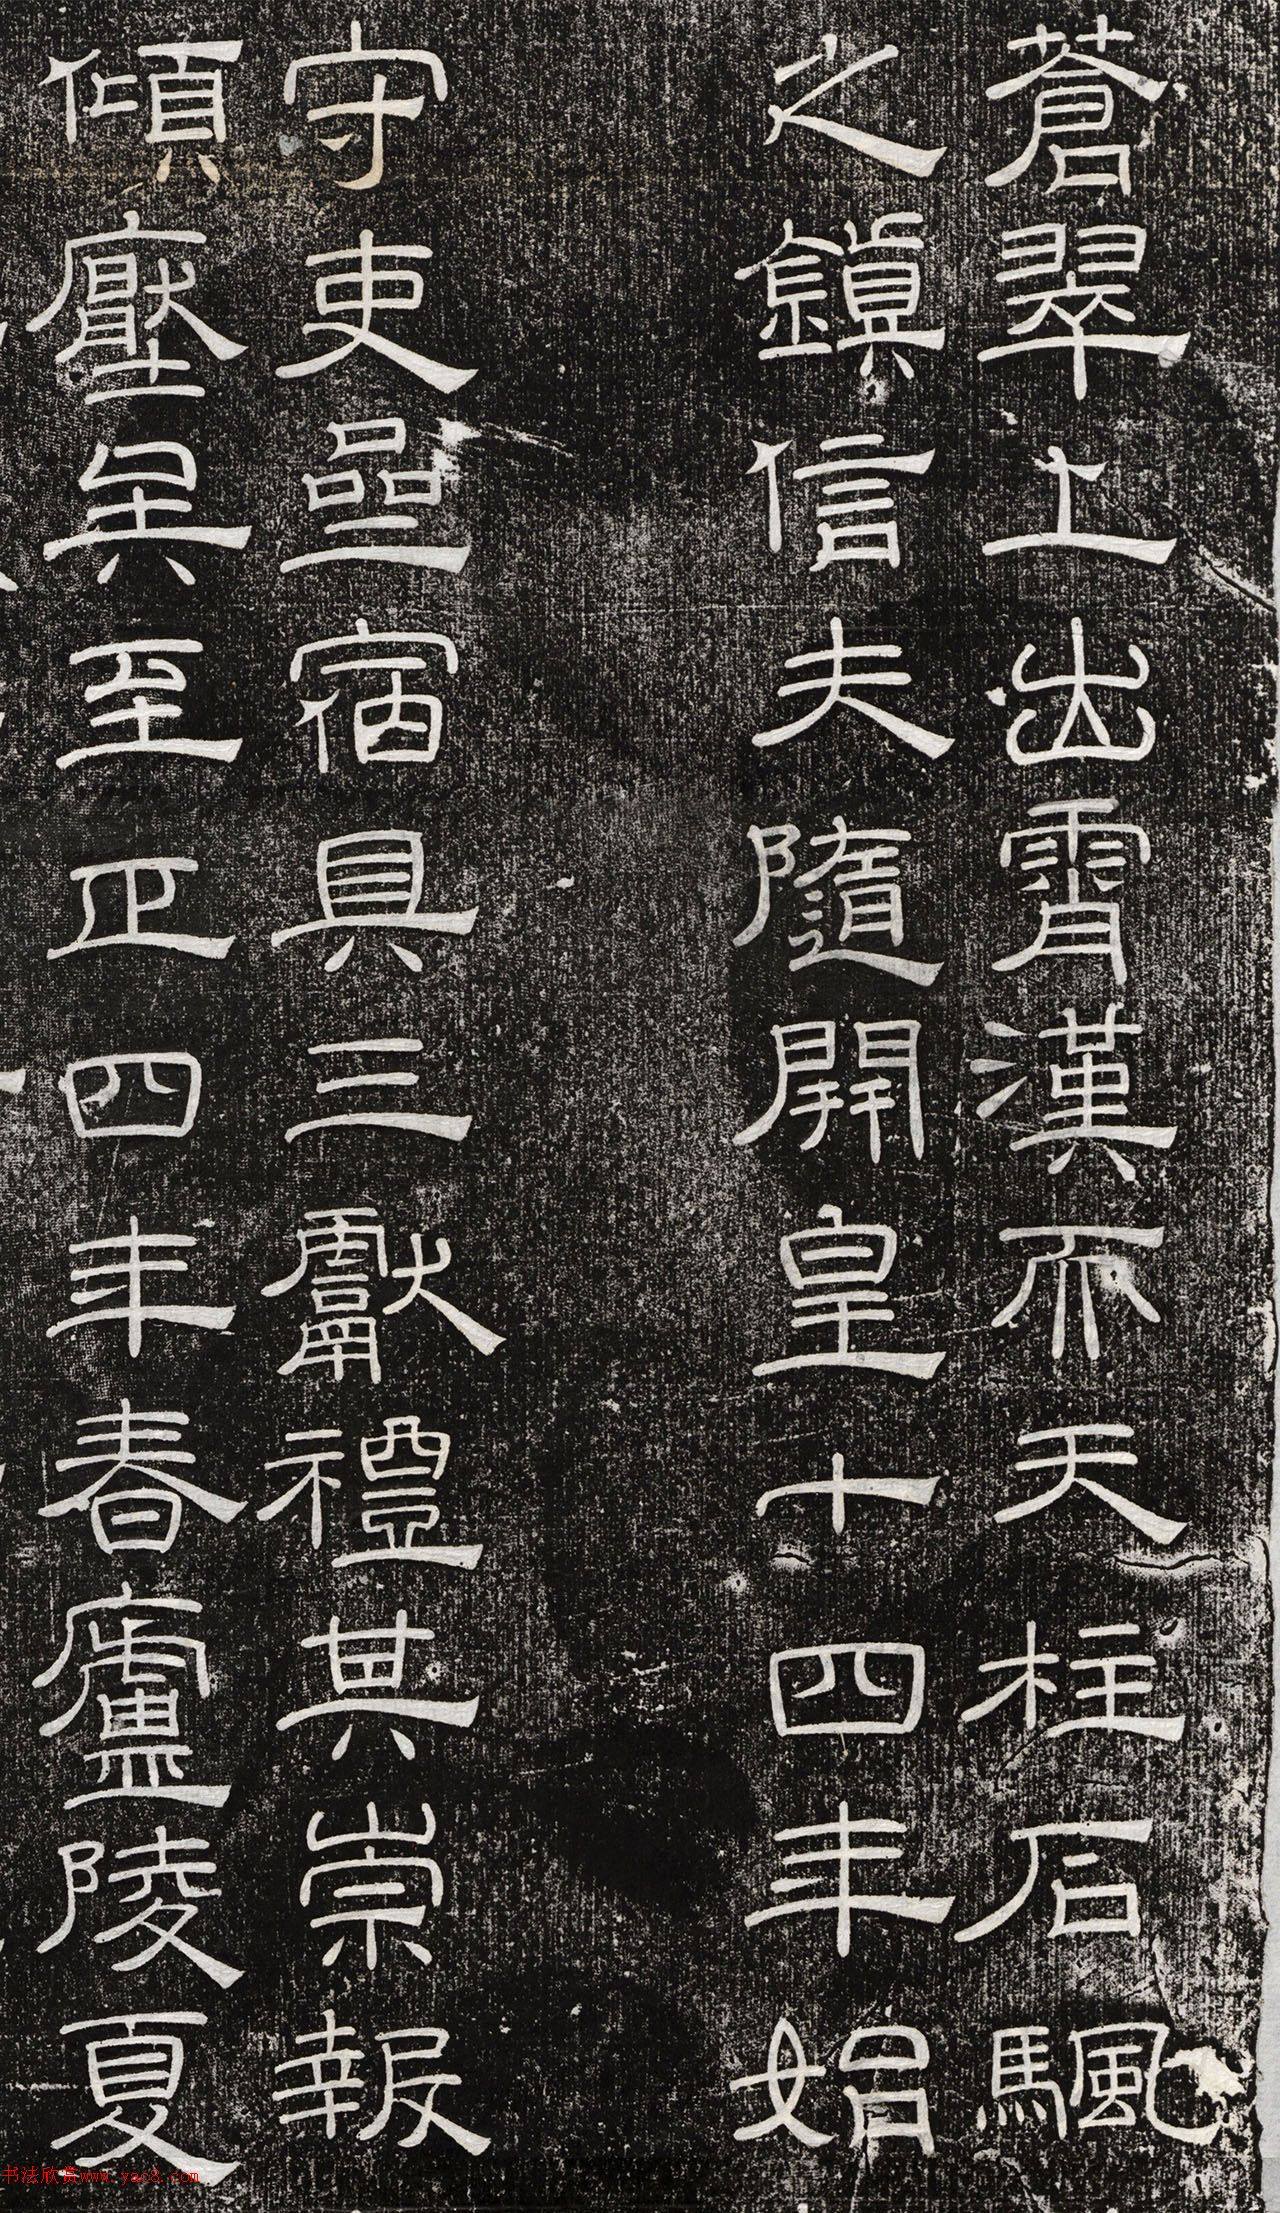 蒼翠上出霄漢不天柱石颿
之鎮信夫隨開皇十四年娟
守吏𤴁宿具三獻禮其崇報
傾壓矣至正四年春廬陵夏
书法欣赏www.yac8.com